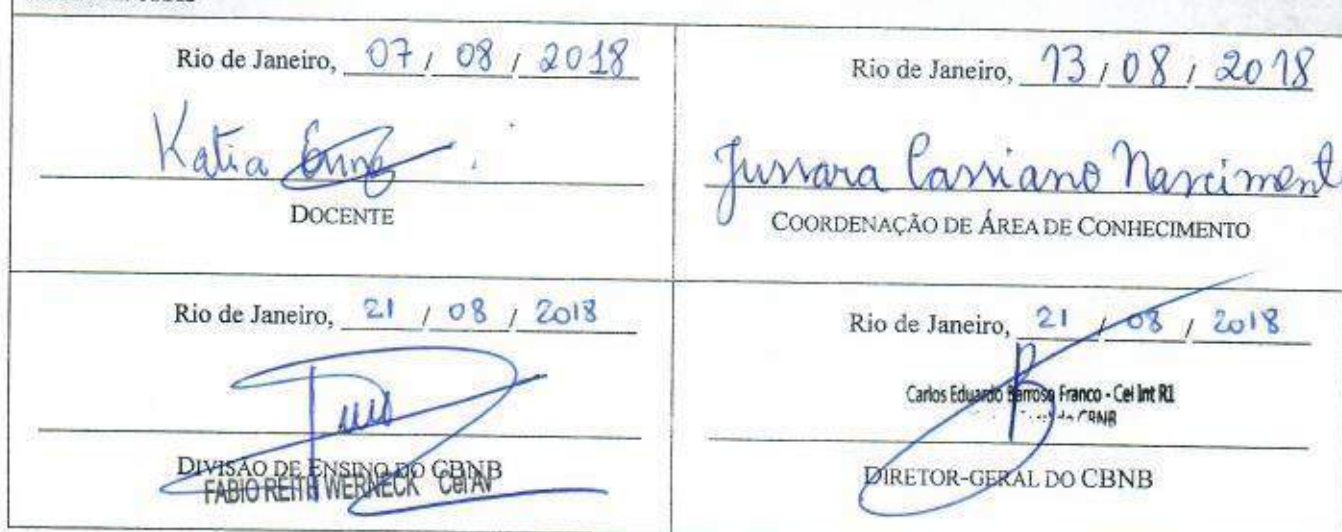 Rio de Janeiro, 07 / 08 / 2018
Katia
DOCENTE
Rio de Janeiro, 13 / 08 / 2018
Jussara Cassiano Nasciment
COORDENAÇÃO DE ÁREA DE CONHECIMENTO
Rio de Janeiro, 21 / 08 / 2018
DIVISÃO DE ENSINO DO CBNB
FABIO REITH WERNECK Cel Av
Rio de Janeiro, 21 / 08 / 2018
Carlos Eduardo Barroso Franco - Cel Int R1
CBNB
DIRETOR-GERAL DO CBNB